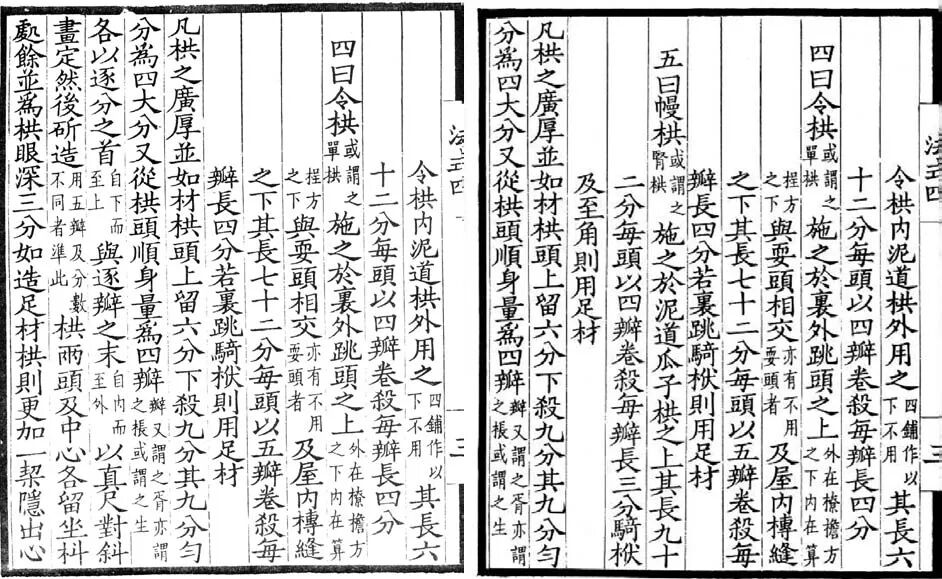 法式四
三
令栱内泥道栱外用之四鋪作以下不用其長六
十二分每頭以四瓣卷殺每瓣長四分
四曰令栱或謂之單栱施之於裏外跳頭之上外在橑檐方之下内在算
桯方之下與耍頭相交亦有不用耍頭者及屋内槫縫
之下其長七十二分每頭以五瓣卷殺每
瓣長四分若裏跳騎栿則用足材
五曰幔栱或謂之腎栱施之於泥道瓜子栱之上其長九十
二分每頭以四瓣卷殺每瓣長三分騎栿
及至角則用足材
凡栱之廣厚並如材栱頭上留六分下殺九分其九分勻
分爲四大分又從栱頭順身量爲四瓣瓣又謂之胥亦謂之棖或謂之生
法式四
三
令栱内泥道栱外用之四鋪作以下不用其長六
十二分每頭以四瓣卷殺每瓣長四分
四曰令栱或謂之單栱施之於裏外跳頭之上外在橑檐方之下内在算
桯方之下與耍頭相交亦有不用耍頭者及屋内槫縫
之下其長七十二分每頭以五瓣卷殺每
瓣長四分若裏跳騎栿則用足材
凡栱之廣厚並如材栱頭上留六分下殺九分其九分勻
分爲四大分又從栱頭順身量爲四瓣瓣又謂之胥亦謂之棖或謂之生
各以逐分之首自下而至上與逐瓣之末自内而至外以真尺對斜
畫定然後斫造用五瓣及分數不同者準此栱兩頭及中心各留坐枓
處餘並爲栱眼深三分如造足材栱則更加一栔隱出心